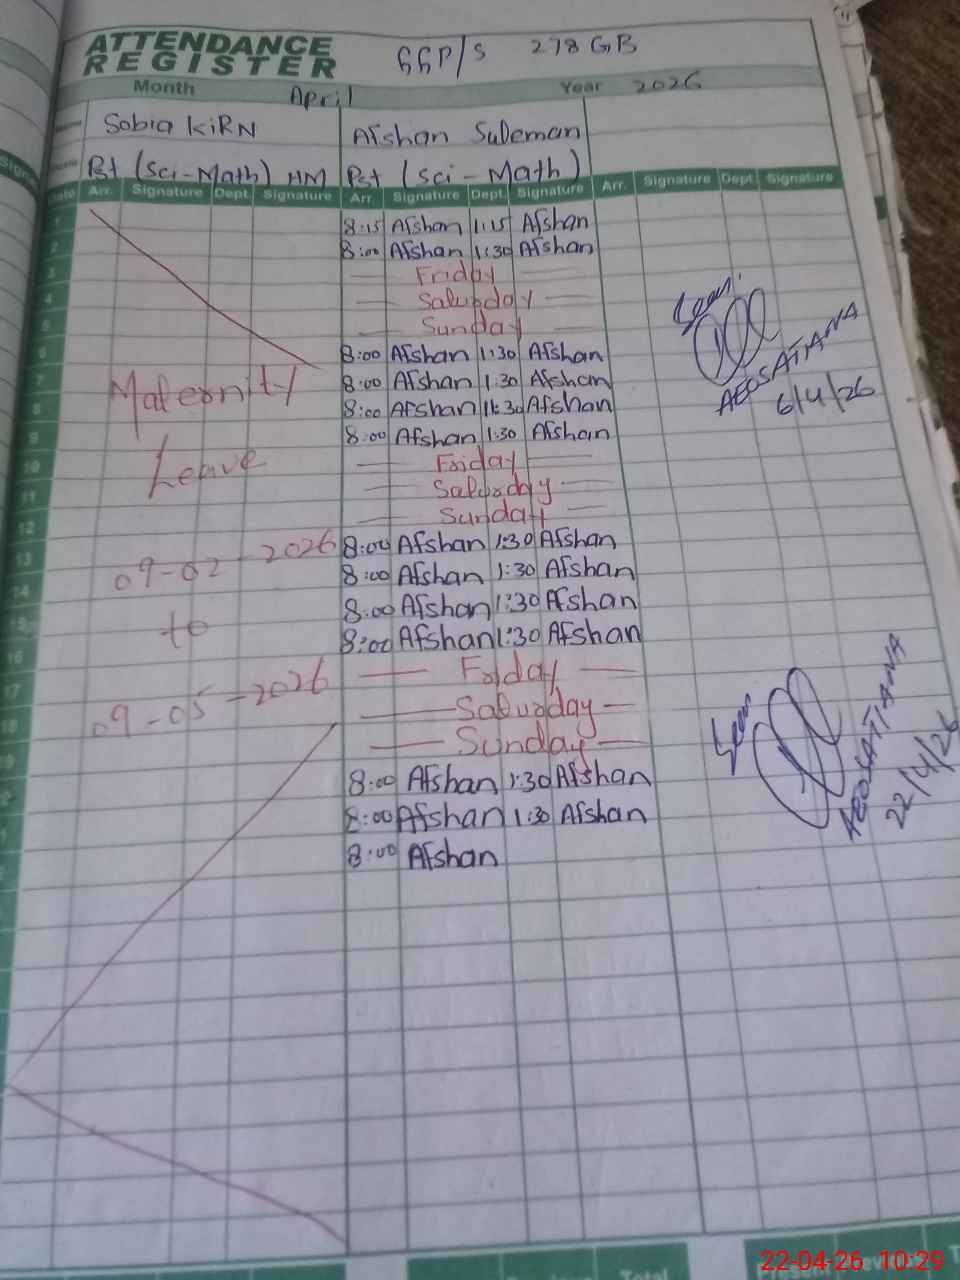 ATTENDANCE REGISTER GGP/S 278 GB
Month April Year 2026
Sobia KiRN Afshan Suleman
Pst (Sci-Math) HM Pst (Sci-Math)
Date Arr. Signature Dept. Signature Arr. Signature Dept. Signature Arr. Signature Dept. Signature
1 8:15 Afshan 1:15 Afshan
2 8:00 Afshan 1:30 Afshan
3 Friday
4 Saturday
5 Sunday
6 8:00 Afshan 1:30 Afshan
7 8:00 Afshan 1:30 Afshan
8 8:00 Afshan 1:30 Afshan
9 8:00 Afshan 1:30 Afshan
10 Friday
11 Saturday
12 Sunday
13 8:00 Afshan 1:30 Afshan
14 8:00 Afshan 1:30 Afshan
15 8:00 Afshan 1:30 Afshan
16 8:00 Afshan 1:30 Afshan
17 Friday
18 Saturday
Sunday
8:00 Afshan 1:30 Afshan
8:00 Afshan 1:30 Afshan
8:00 Afshan
Maternity
Leave
09-02-2026
to
09-05-2026
Seen
AEOSATIANA
6/4/26
Seen
AEOSATIANA
22/4/26
Total
22-04-26 10:29